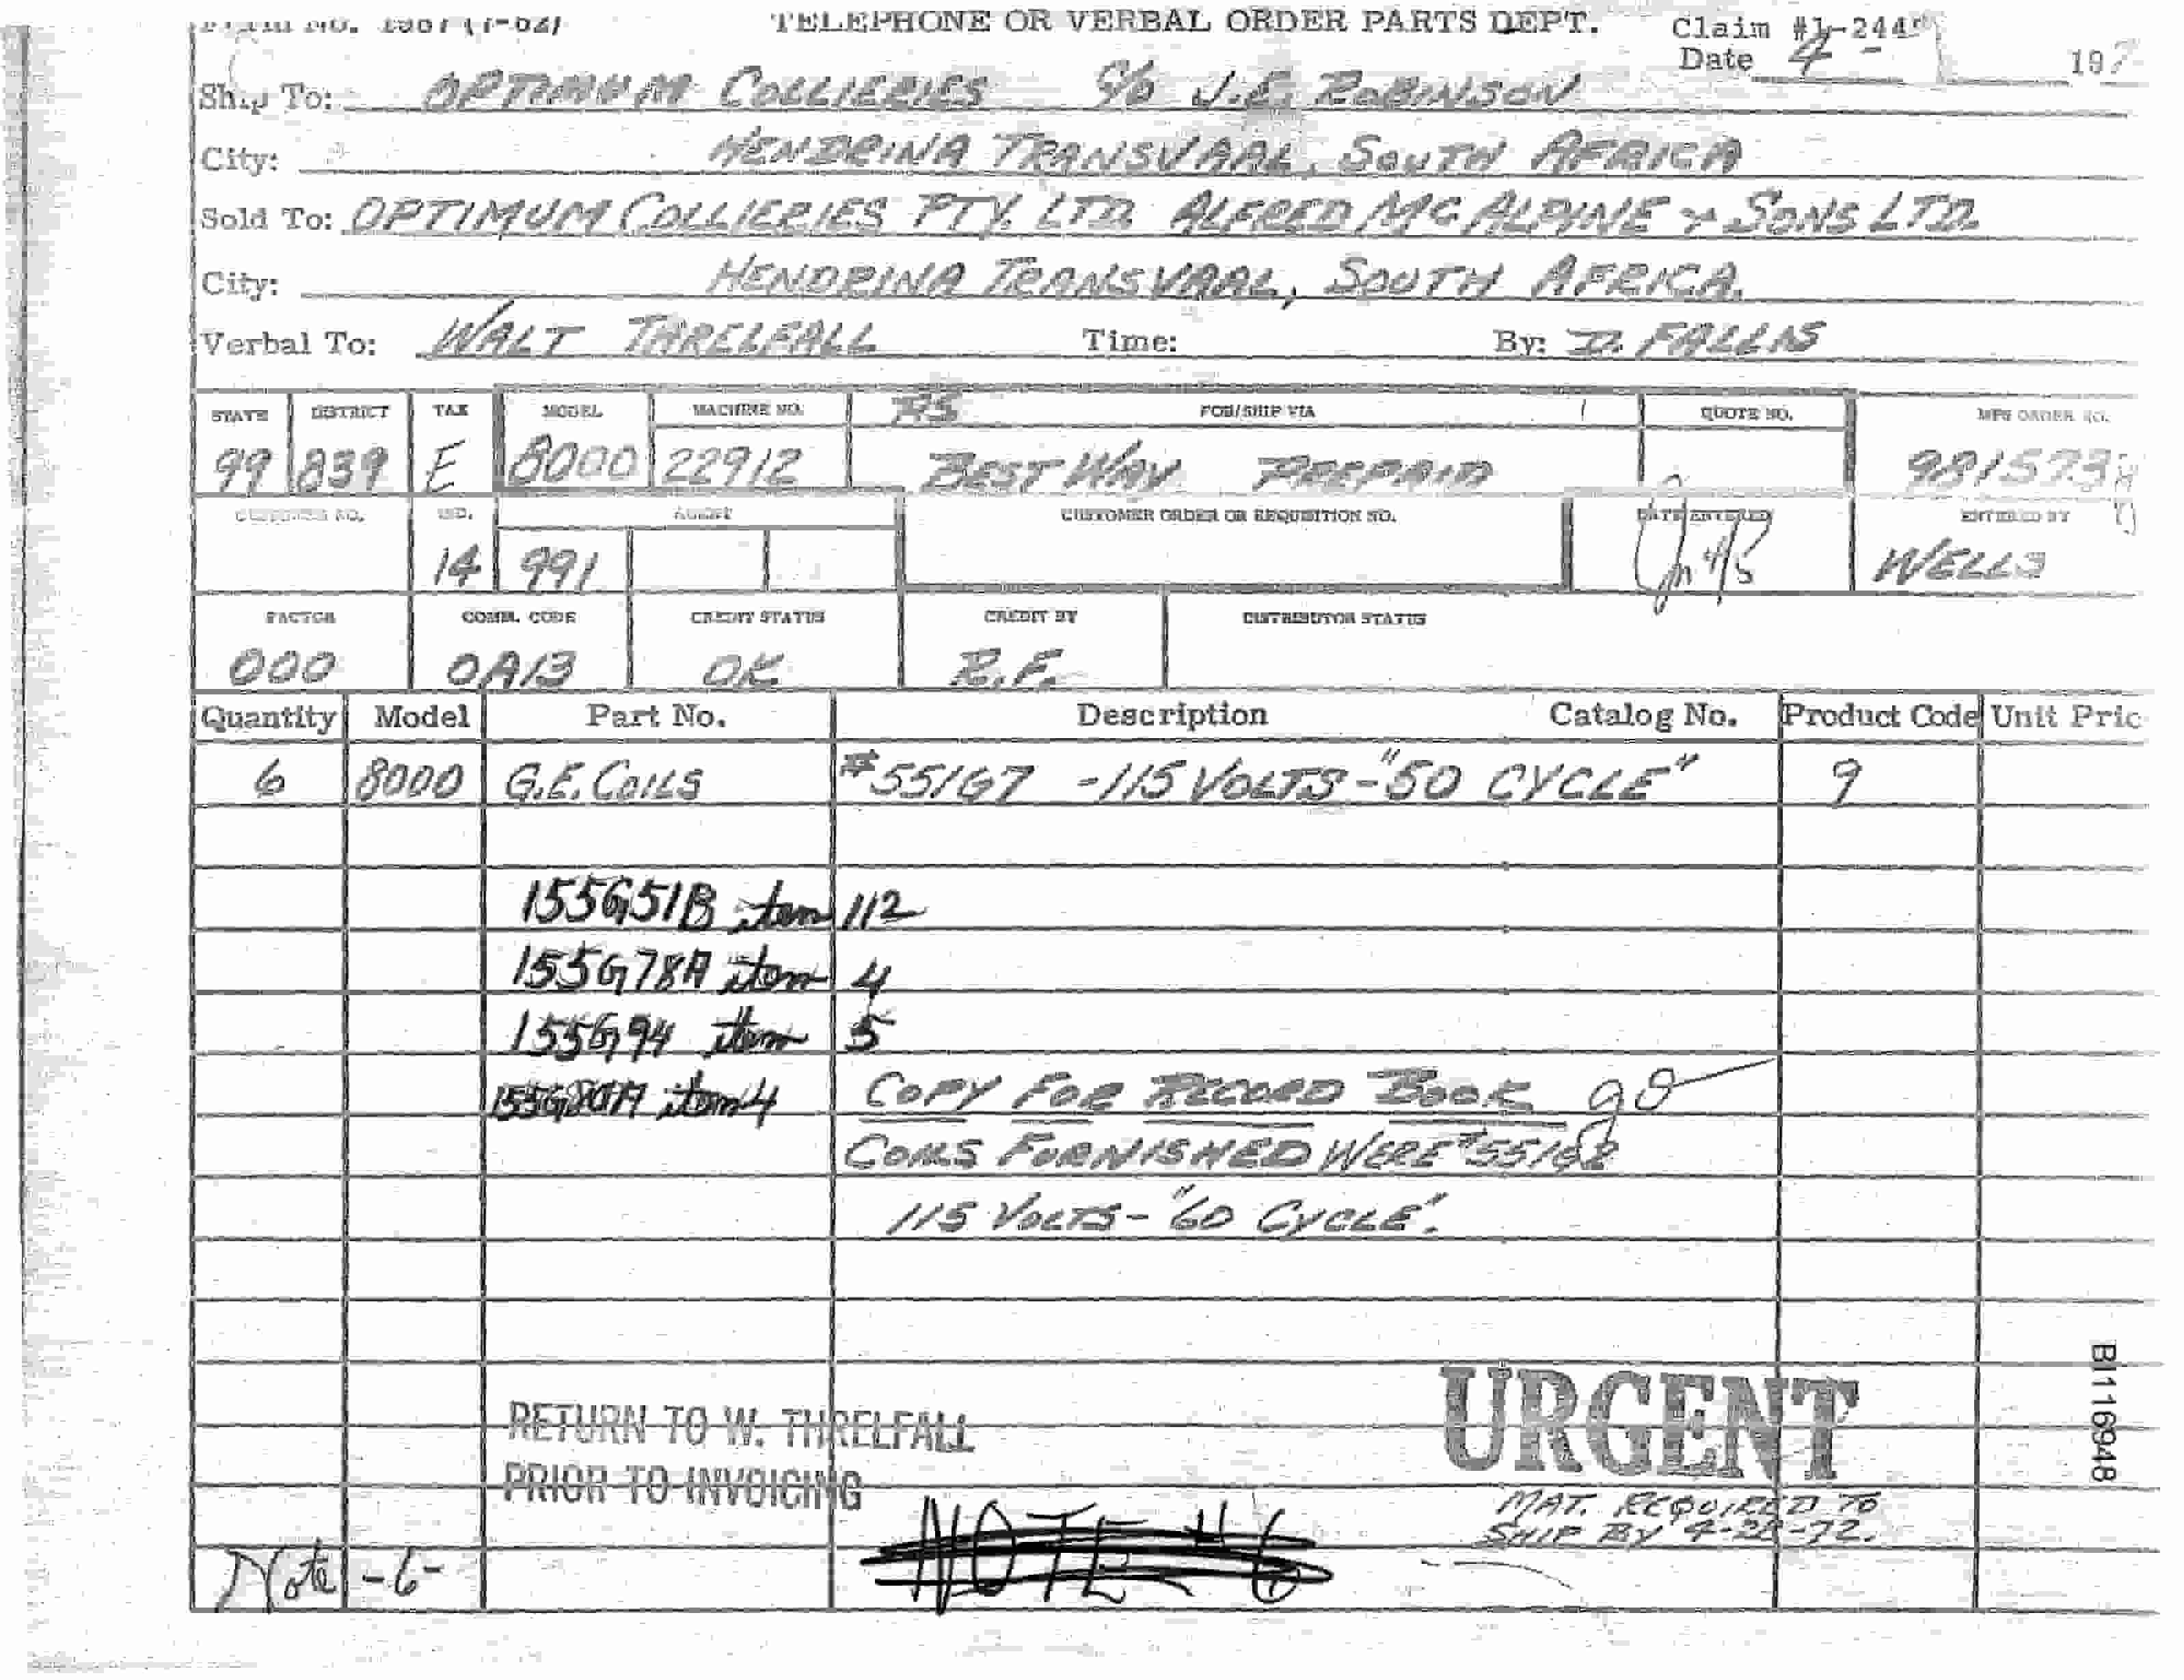 TELEPHONE OR VERBAL ORDER PARTS DEPT.
Claim #L-244
Date 4 - 197
Ship To: OPTIMUM COLLIERIES C/O J.E. ROBINSON
City: HENDRINA TRANSVAAL, SOUTH AFRICA
Sold To: OPTIMUM COLLIERIES PTY. LTD. ALFRED MCALPINE & SONS LTD.
City: HENDRINA TRANSVAAL, SOUTH AFRICA.
Verbal To: WALT THRELFALL Time: By: D. FALLIS
STATE DISTRICT TAX MODEL MACHINE NO. FOB/SHIP VIA QUOTE NO. MFG ORDER NO.
99 839 E 8000 22912 BEST WAY PREPAID 981573
CUSTOMER NO. IND. AGENT CUSTOMER ORDER OR REQUISITION NO. DATE ENTERED ENTERED BY
14 991 4/5 WELLS
FACTOR COMM. CODE CREDIT STATUS CREDIT BY DISTRIBUTOR STATUS
000 0A13 OK R.F.
Quantity Model Part No. Description Catalog No. Product Code Unit Pric
6 8000 G.E. COILS #55167 -115 VOLTS-"50 CYCLE" 9
155G51B item 112
155G78A item 4
155G94 item 5
item 4 COPY FOR RECORD BOOK
COILS FURNISHED WERE #55168
115 VOLTS - "60 CYCLE".
URGENT
RETURN TO W. THRELFALL
PRIOR TO INVOICING
MAT. REQUIRED TO
SHIP BY 4-28-72.
NOTE # 6
Note -6-
B116948